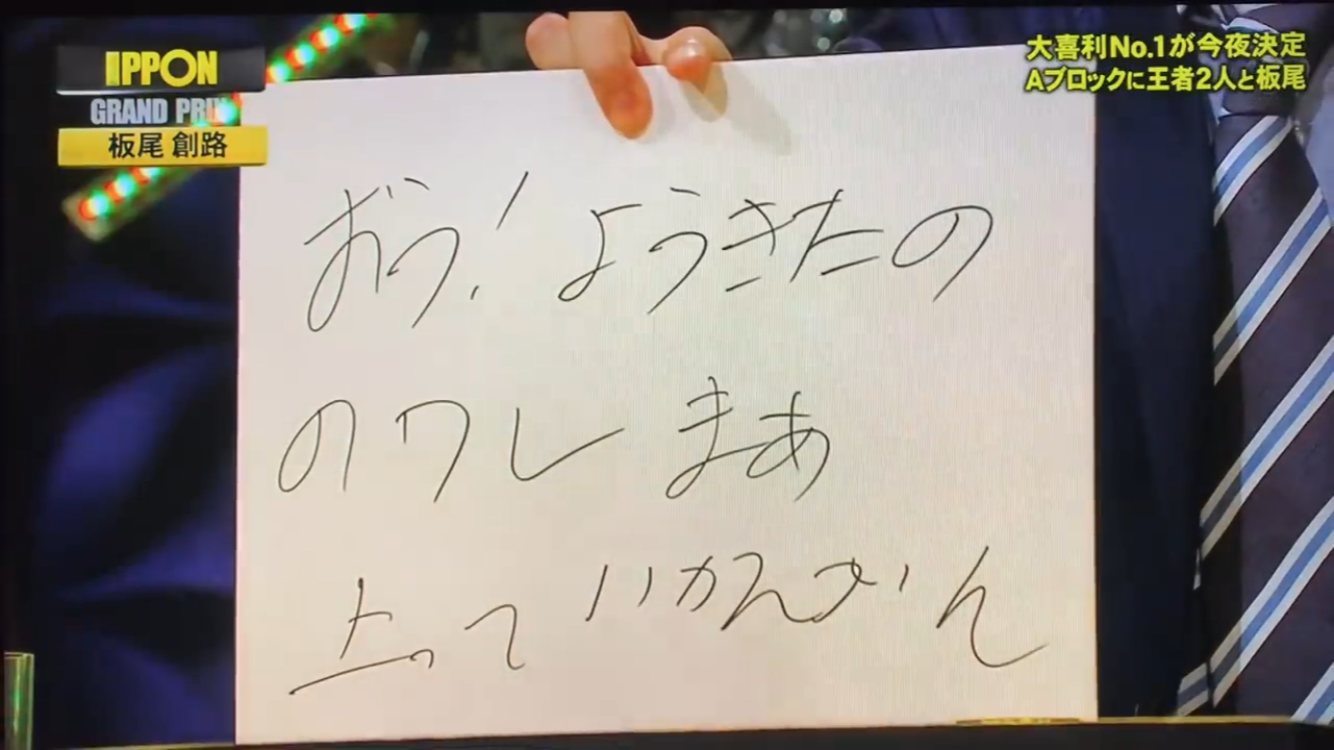 IPPON
GRAND PRIX
板尾 創路
大喜利No.1が今夜決定
Aブロックに王者2人と板尾
おう！ようきたの
のワレ まあ
上って いかんかん